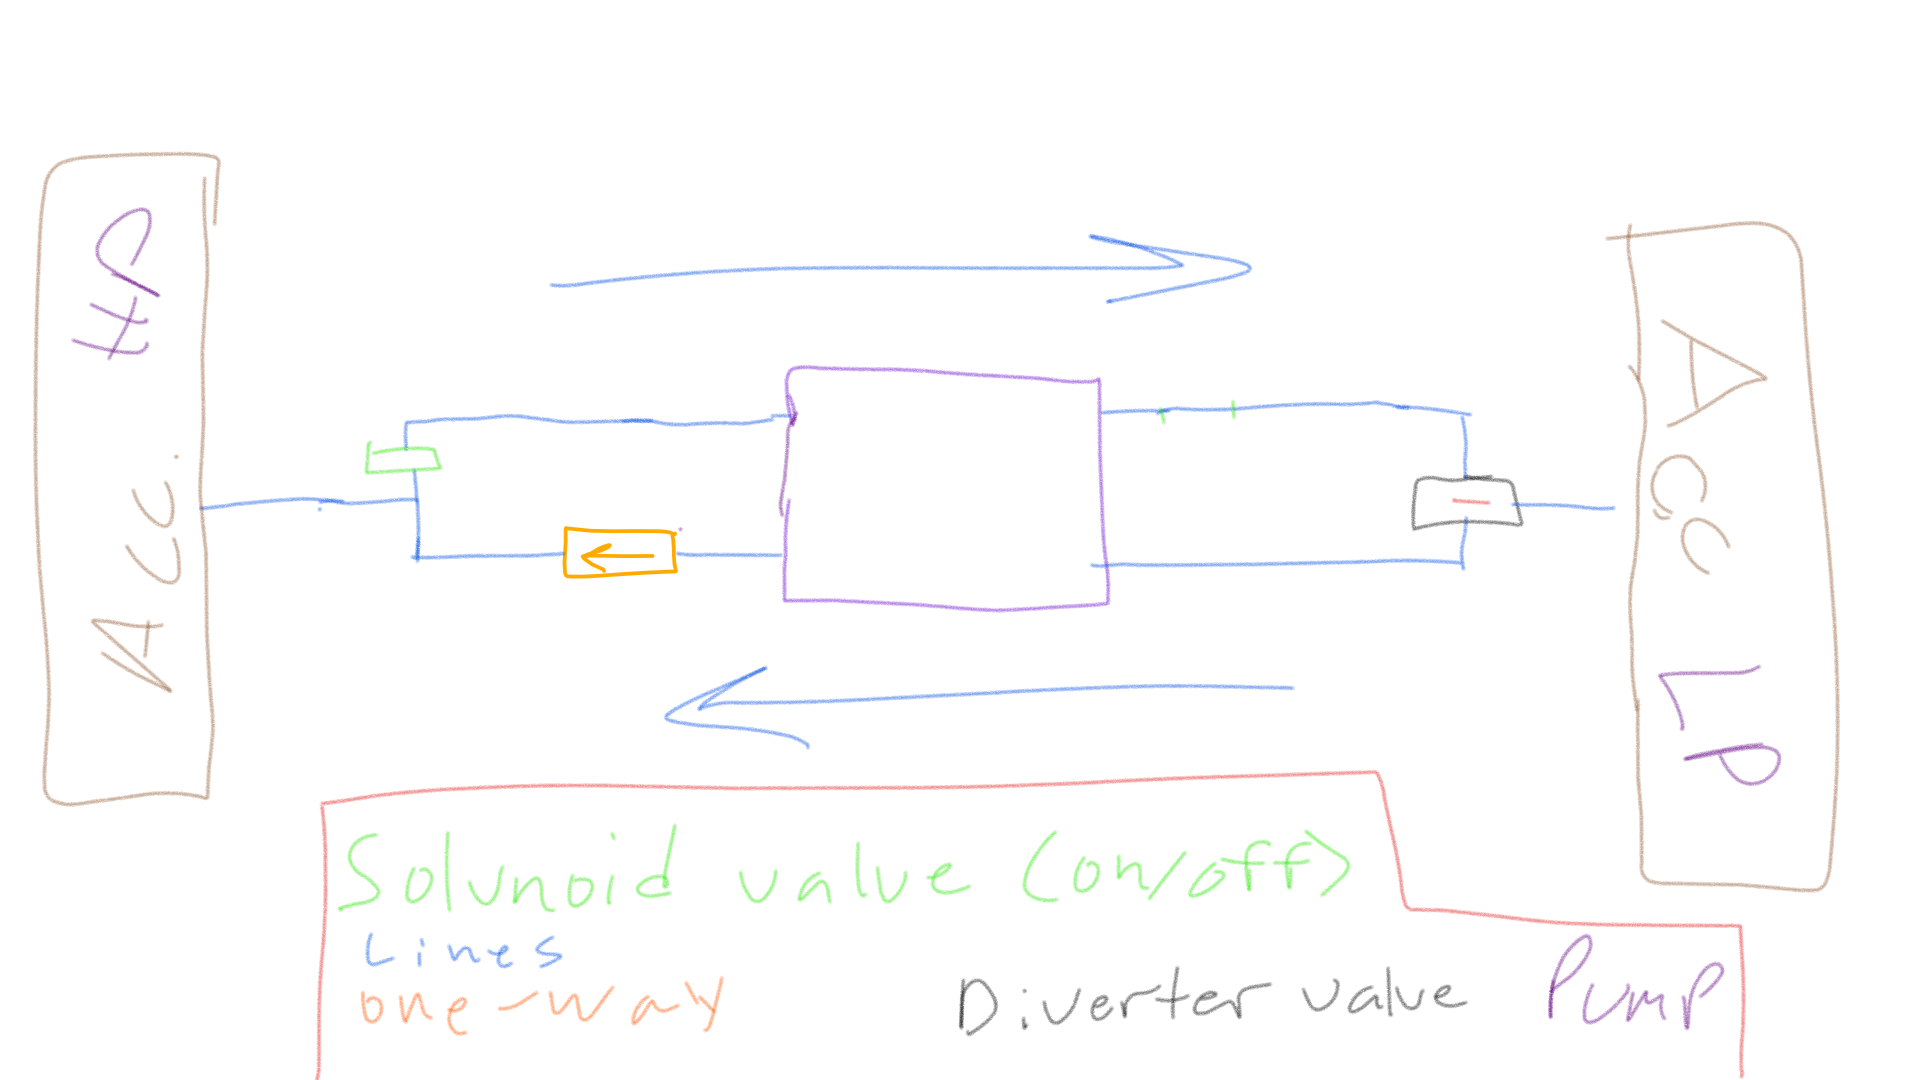 Acc. HP
Acc LP
Solunoid valve (on/off)
Lines
one-way
Diverter valve
Pump